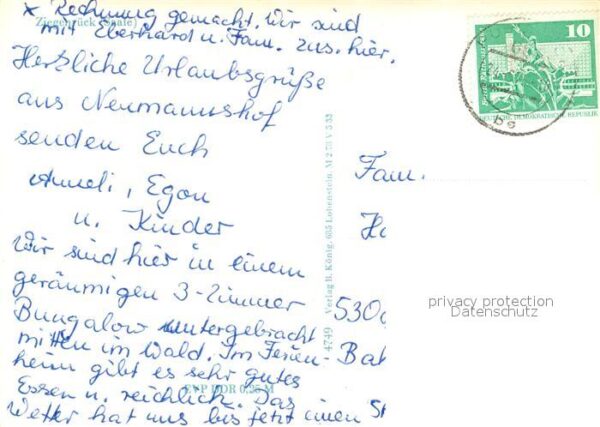 * Rechnung gemacht. Wir sind
mit Eberhard u. Fam. zus. hier.
Ziegenrück (Saale)
Herzliche Urlaubsgrüße
aus Neumannshof
senden Euch
Anneli, Egon
u. Kinder
Wir sind hier in einem
geräumigen 3-Zimmer
Bungalow untergebracht
mitten im Wald. Im Ferien-
heim gibt es sehr gutes
Essen u. reichlich. Das
Wetter hat uns bis jetzt einen St
EVP DDR 0,25 M
4749 Verlag B. König, 685 Lobenstein, M 2 76 V 5 32
10
DEUTSCHE DEMOKRATISCHE REPUBLIK
Fam.
H
530
Ba
privacy protection
Datenschutz